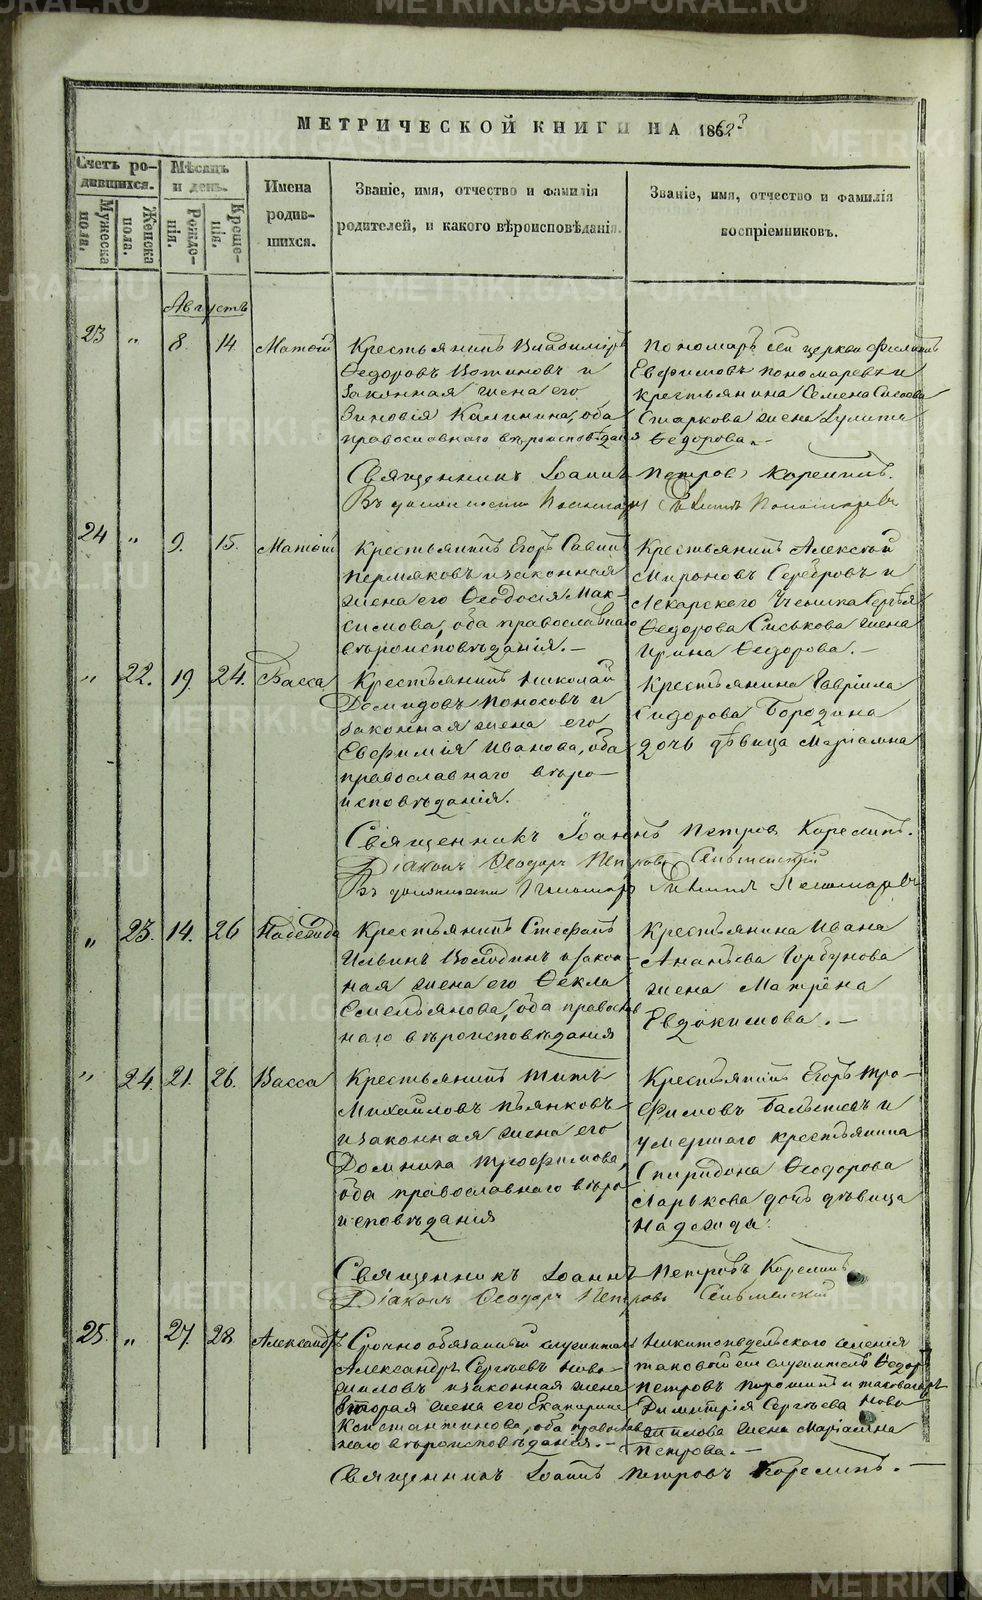 METRIKI.GASO-URAL.RU
МЕТРИЧЕСКОЙ КНИГИ НА 186
Счетъ родившихся.
Мужеска пола.
Женска пола.
Мѣсяцъ и день.
Рожденія.
Крещенія.
Имена родившихся.
Званіе, имя, отчество и фамилія
родителей, и какого вѣроисповѣданія.
Званіе, имя, отчество и фамилія
воспріемниковъ.
Августъ
23 " 8. 14
Крестьянинъ Владиміръ
Ѳедоровъ и
законная жена его
Зиновія Калинина, оба
православнаго вѣроисповѣданія
Пономарь сей церкви Филиппъ
Евфимовъ Пономаревъ и
крестьянина Семена
Старкова жена
Ѳедорова. –
Священникъ Іоаннъ Петровъ Корелинъ.
Въ должности Пономаря Филиппъ Пономаревъ
24 " 9. 15.
Крестьянинъ Егоръ Савинъ
Пермяковъ и законная
жена его Ѳеодосія Мак-
симова, оба православнаго
вѣроисповѣданія. –
Крестьянинъ Алексѣй
Мироновъ Серебровъ и
Лекарского Ученика Сергѣя
Ѳедорова Сиськова жена
Ирина Ѳедорова. –
" 22. 19. 24. Васса
Крестьянинъ Николай
Демидовъ Поносовъ и
законная жена его
Евфимія Иванова, оба
православнаго вѣро-
исповѣданія.
Крестьянина Гавріила
Сидорова Бородина
дочь дѣвица Маріамна
Священникъ Іоаннъ Петровъ Корелинъ.
Діаконъ Ѳеодоръ Петровъ
Въ должности Пономаря Филиппъ Пономаревъ
" 23. 14. 26 Надежда
Крестьянинъ Стефанъ
Ильинъ и закон-
ная жена его Ѳекла
Емельянова, оба православ
наго вѣроисповѣданія
Крестьянина Ивана
Ананьева Горбунова
жена Матрёна
Евдокимова. –
" 24. 21. 26. Васса
Крестьянинъ Титъ
Михайловъ Пьянковъ
и законная жена его
Домника Трофимова,
оба православнаго вѣро
исповѣданія
Крестьянинъ Егоръ Тро-
фимовъ и
умершаго крестьянина
Спиридона Ѳеодорова
Марькова дочь дѣвица
Надежда.
Священникъ Іоаннъ Петровъ Корелинъ
Діаконъ Ѳеодоръ Петровъ
25. " 27. 28. Александръ
Срочно обязанный служитель
Александръ Сергѣевъ Ново-
жиловъ и законная жена
вторая жена его Екатерина
Константинова, оба православ
наго вѣроисповѣданія. –
селенія
таковой же служитель Ѳедоръ
Петровъ и таковагожъ
Димитрія Сергѣева Ново
жилова жена Маріамна
Петрова. –
Священникъ Іоаннъ Петровъ Корелинъ. –